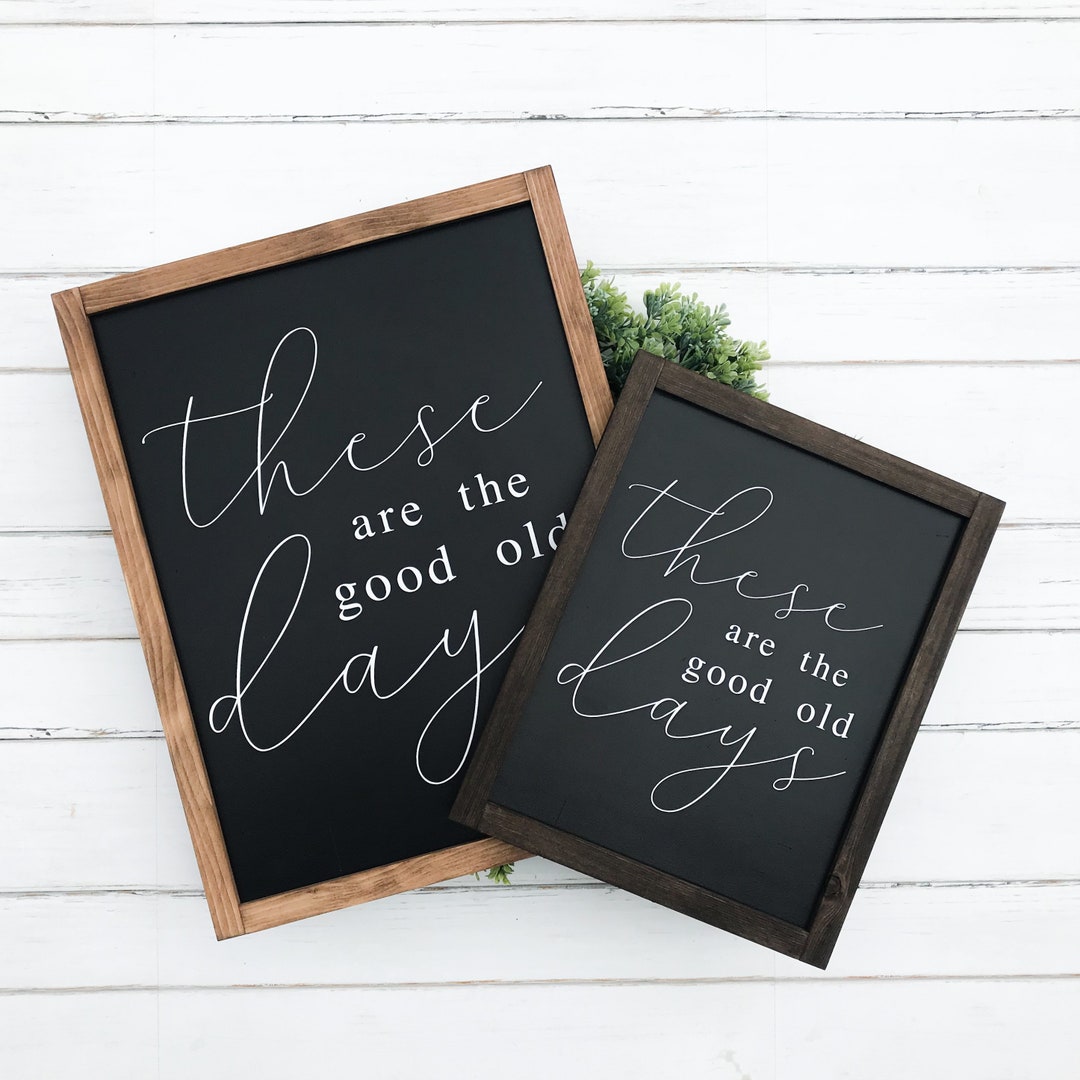 these
are the
good old
days
these
are the
good old
days